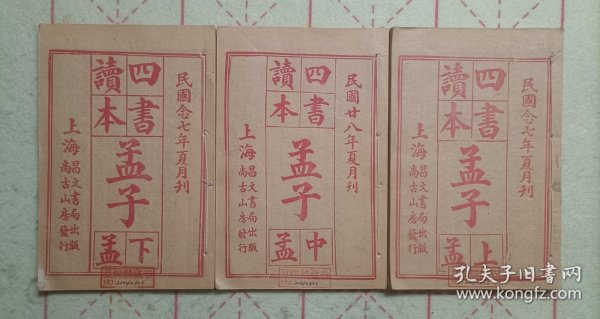 民國念七年夏月刊
四書
讀本
孟子
上孟
上海
昌文書局出版
尚古山房發行
民國廿八年夏月刊
四書
讀本
孟子
中孟
上海
昌文書局出版
尚古山房發行
民國念七年夏月刊
四書
讀本
孟子
下孟
上海
昌文書局出版
尚古山房發行
孔夫子旧书网
www.kongfz.com